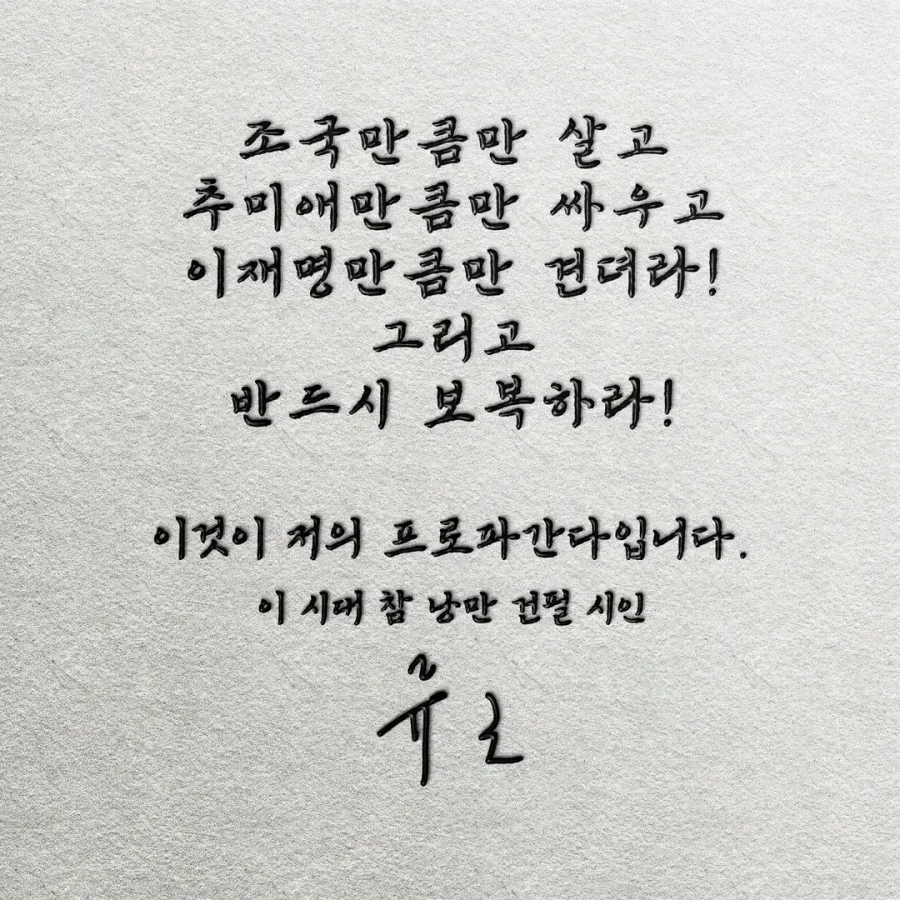 조국만큼만 살고
추미애만큼만 싸우고
이재명만큼만 견뎌라!
그리고
반드시 보복하라!
이것이 저의 프로파간다입니다.
이 시대 참 낭만 건필 시인